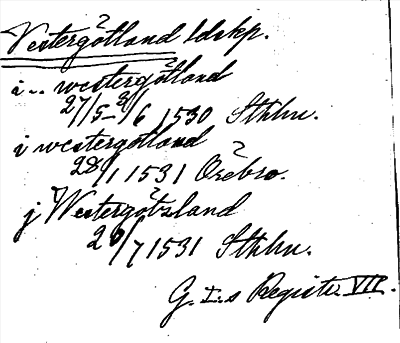 Vestergötland ldskp.
i -- westergötland
27/5 - 8/6 1530 Sthlm.
i westergotland
28/1 1531 Örebro.
j Westergötzland
26/7 1531 Sthlm.
G. I.s Registr. VII.